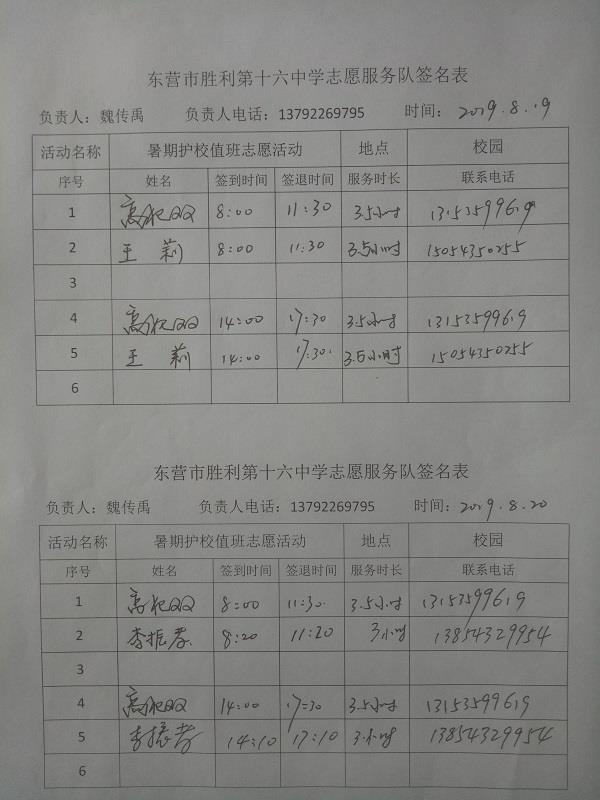 东营市胜利第十六中学志愿服务队签名表
负责人：魏传禹 负责人电话：13792269795 时间：2019.8.19
活动名称 暑期护校值班志愿活动 地点 校园
序号 姓名 签到时间 签退时间 服务时长 联系电话
1 高 双 8:00 11:30 3.5小时 13153599619
2 王莉 8:00 11:30 3.5小时 15054350255
3
4 高 双 14:00 17:30 3.5小时 13153599619
5 王莉 14:00 17:30 3.5小时 15054350255
6
东营市胜利第十六中学志愿服务队签名表
负责人：魏传禹 负责人电话：13792269795 时间：2019.8.20
活动名称 暑期护校值班志愿活动 地点 校园
序号 姓名 签到时间 签退时间 服务时长 联系电话
1 高 双 8:00 11:30 3.5小时 13153599619
2 李振孝 8:20 11:20 3小时 13854329954
3
4 高 双 14:00 17:30 3.5小时 13153599619
5 李振孝 14:10 17:10 3小时 13854329954
6